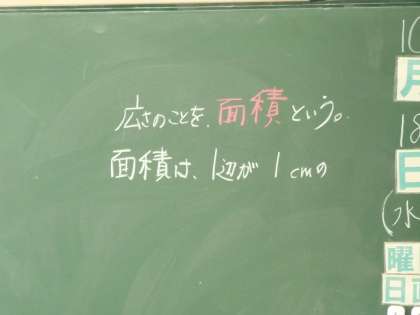 広さのことを、面積という。
面積は、1辺が1cmの
10
月
18
日
(水
曜
日直